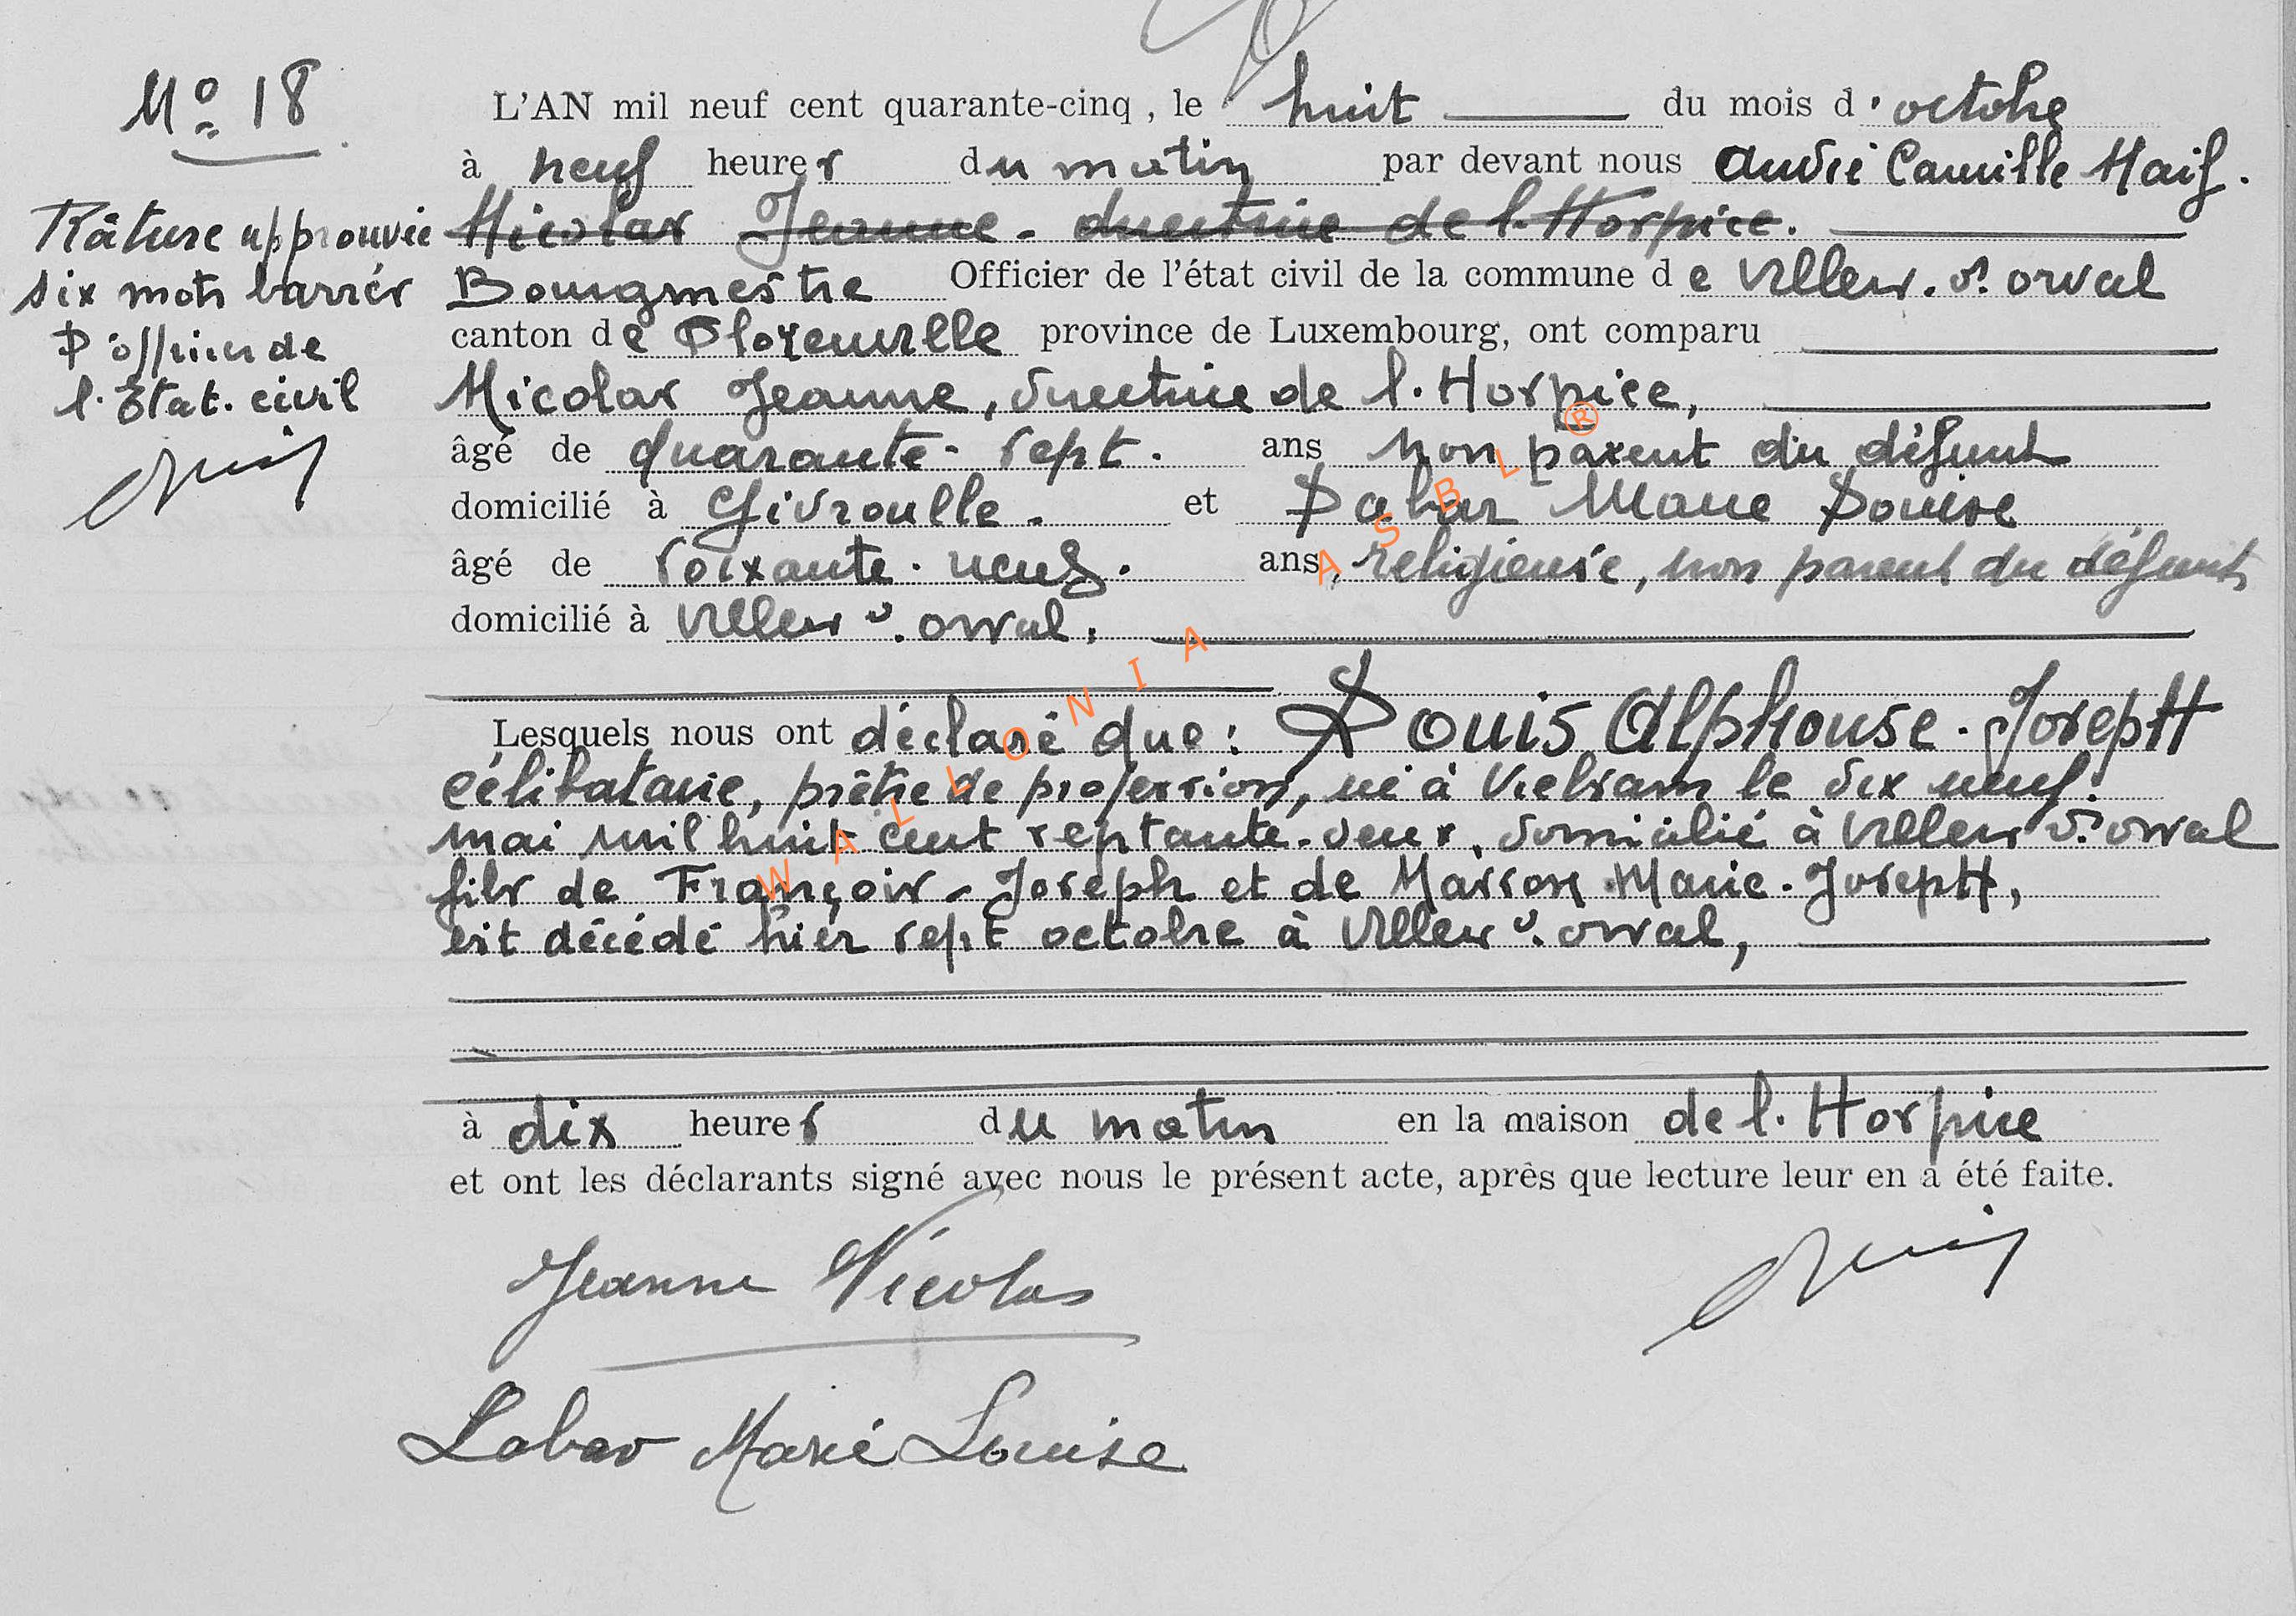 No 18
L'AN mil neuf cent quarante-cinq, le huit du mois d'octobre
à neuf heures du matin par devant nous André Camille Haif.
Nicolas Jeanne - directrice de l'Hospice.
Râture approuvée
six mots barrés
L'officier de
l'Etat-civil
Bourgmestre Officier de l'état civil de la commune de Villers-d'-orval
canton de Florenville province de Luxembourg, ont comparu
Nicolas Jeanne, directrice de l'Hospice,
âgé de quarante-sept. ans non parent du défunt
domicilié à Givroulle. et Labar Marie Louise
âgé de soixante-neuf. ans, religieuse, non parent du défunt
domicilié à Villers d. orval,
Lesquels nous ont déclaré que: Louis Alphonse-Joseph
célibataire, prêtre de profession, né à Vielsam le dix neuf.
mai mil huit cent septante-deux, domicilié à Villers d. orval
fils de François-Joseph et de Masson Marie-Joseph,
est décédé hier sept octobre à Villers d. orval,
à dix heures du matin en la maison de l'Hospice
et ont les déclarants signé avec nous le présent acte, après que lecture leur en a été faite.
Jeanne Nicolas
Labar Marie Louise
WALLONIA ASBL ®